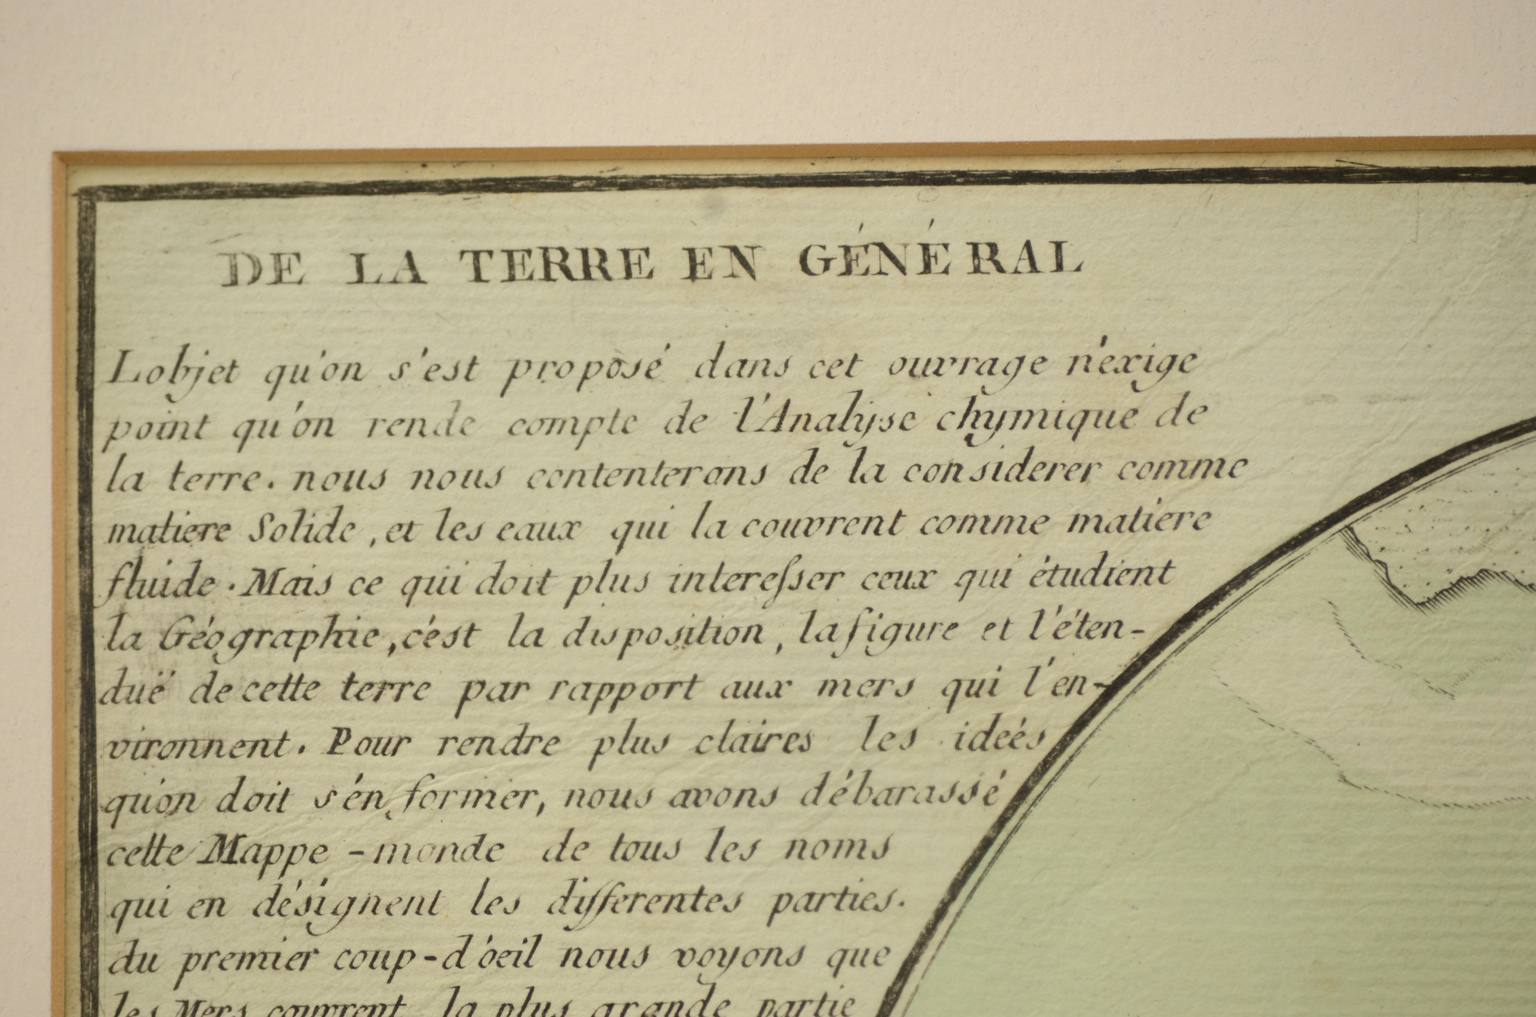 DE LA TERRE EN GÉNÉRAL
Lobjet qu'on s'est proposé dans cet ouvrage n'exige
point qu'on rende compte de l'Analyse chymique de
la terre. nous nous contenterons de la considerer comme
matiere Solide, et les eaux qui la couvrent comme matiere
fluide. Mais ce qui doit plus interesser ceux qui étudient
la Géographie, c'est la disposition, la figure et l'éten-
duë de cette terre par rapport aux mers qui l'en-
vironnent. Pour rendre plus claires les ideés
qu'on doit s'en former, nous avons débarassé
cette Mappe-monde de tous les noms
qui en désignent les differentes parties.
du premier coup-d'oeil nous voyons que
les Mers couvrent la plus grande partie